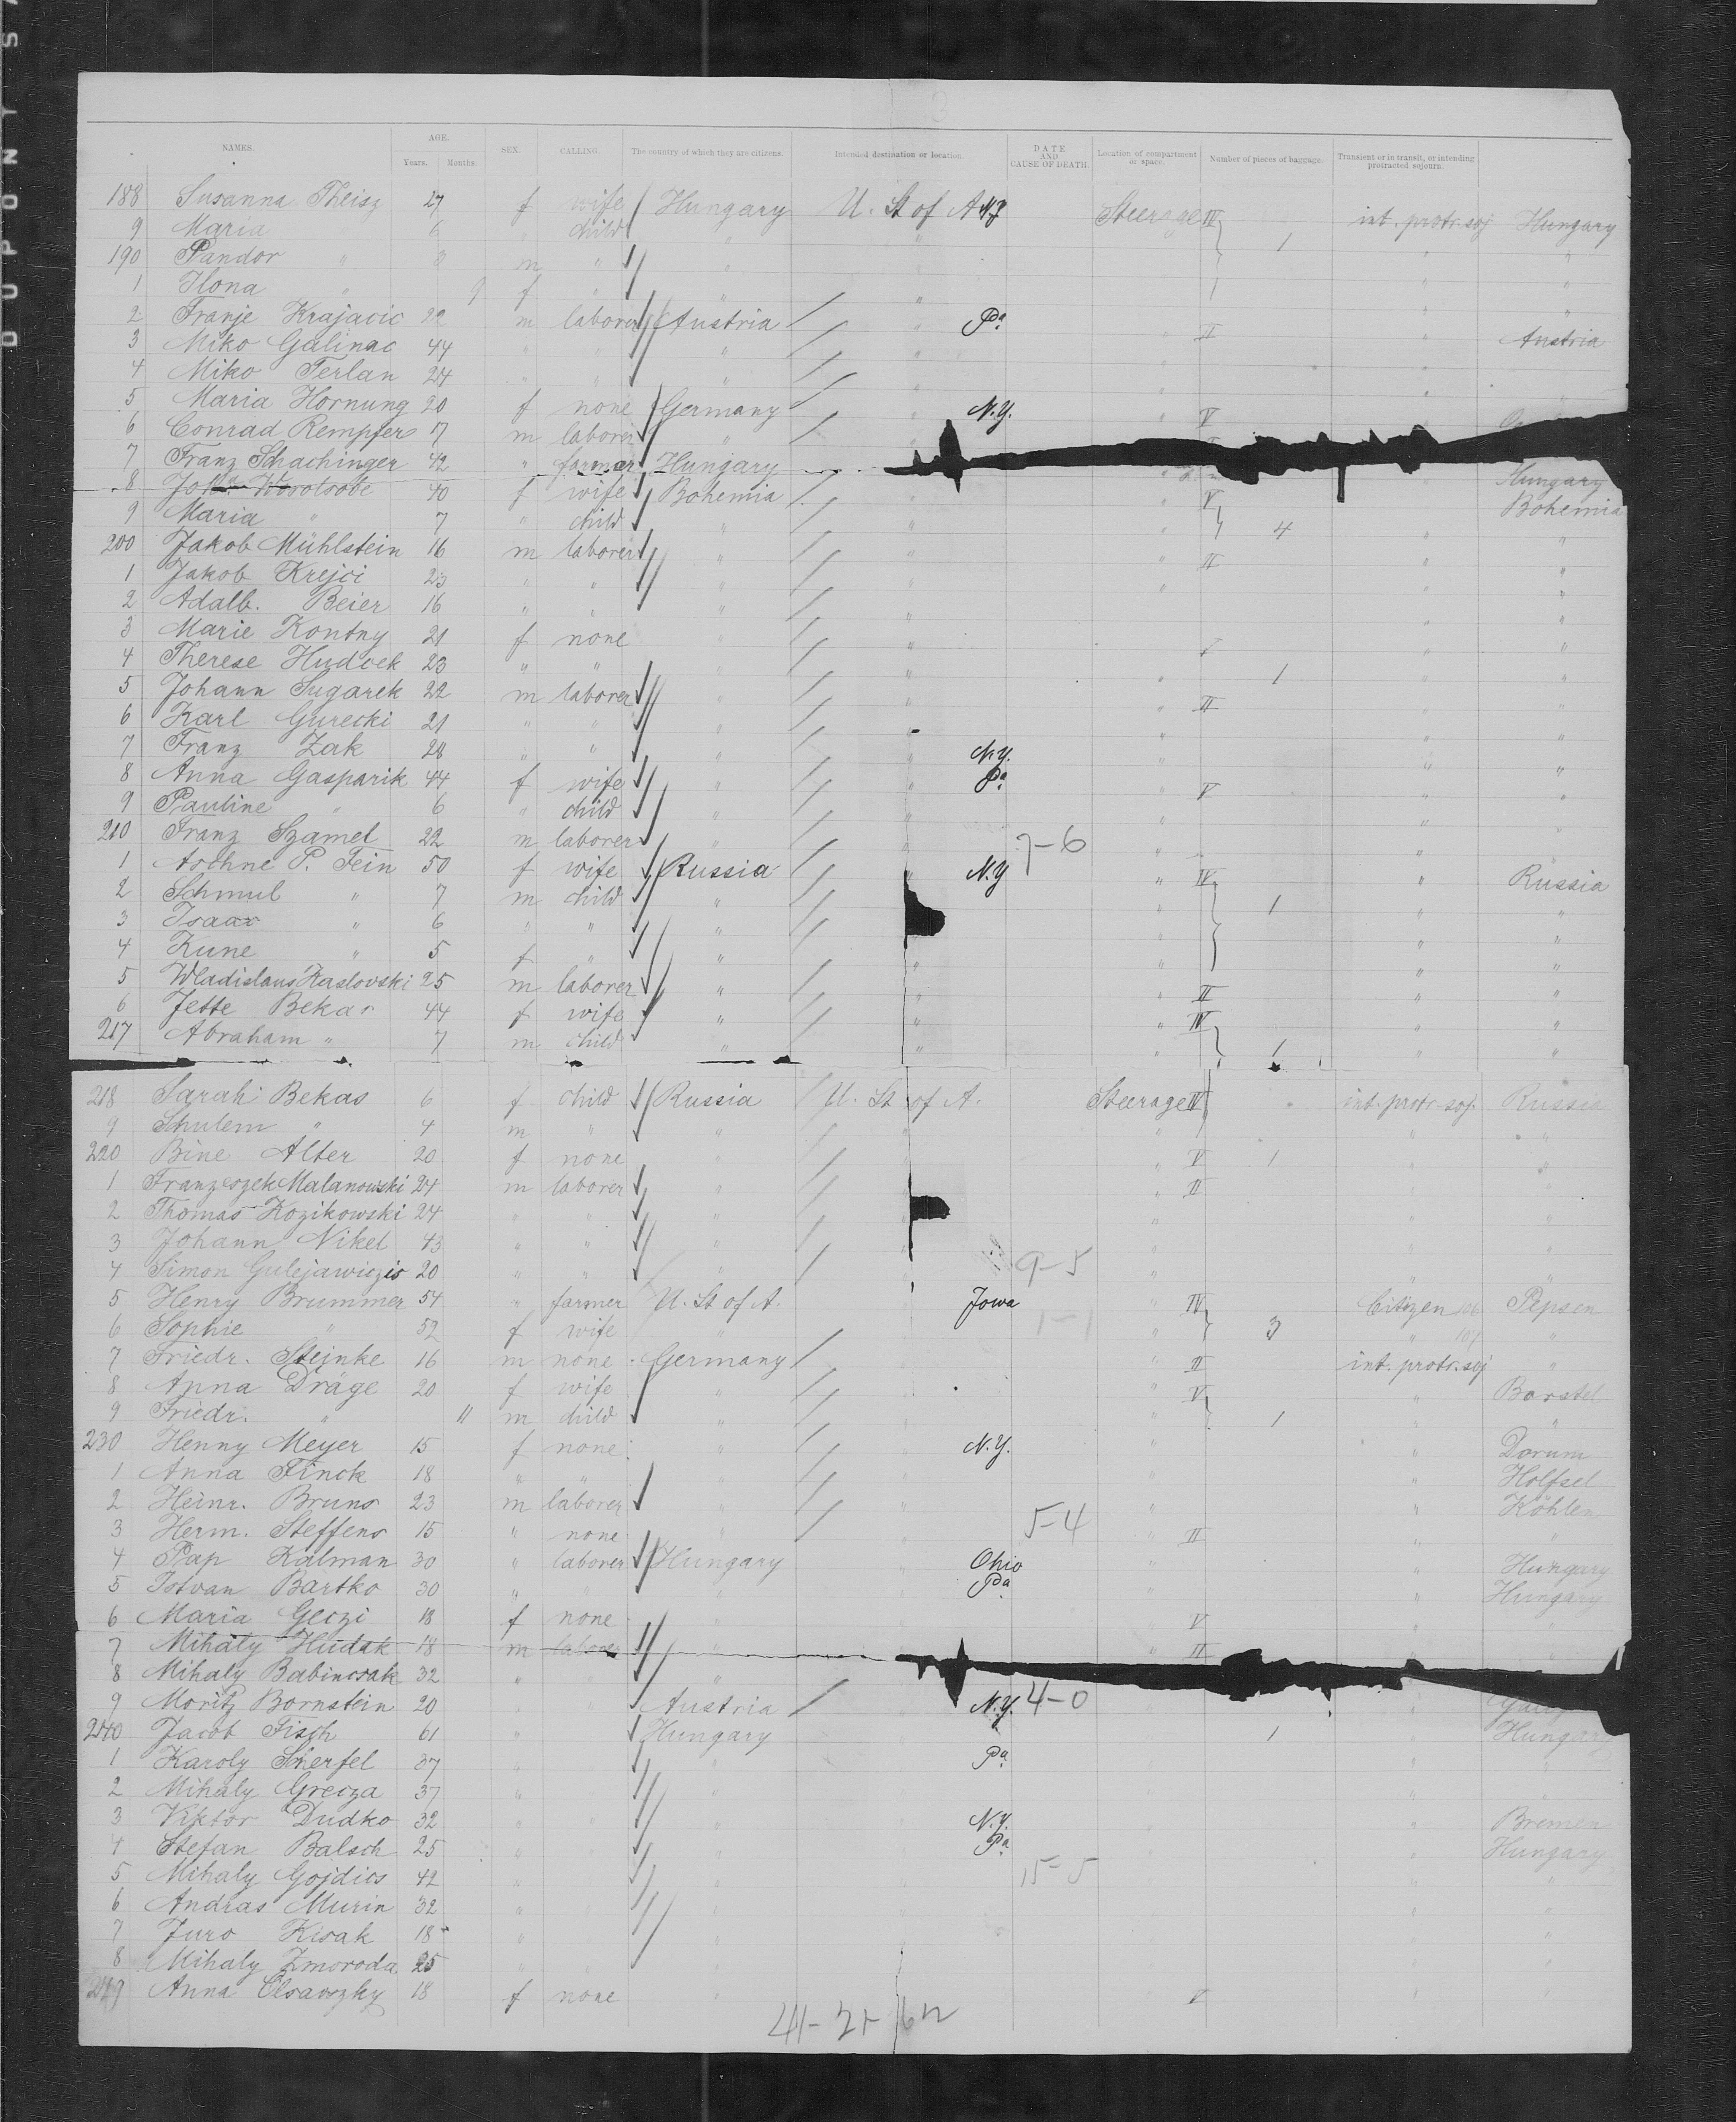 DUPONT S
NAMES. AGE. Years. Months. SEX. CALLING. The country of which they are citizens. Intended destination or location. DATE AND CAUSE OF DEATH. Location of compartment or space. Number of pieces of baggage. Transient or in transit, or intending protracted sojourn.
188 Susanna Theisz 27 f wife Hungary U. St of A N.J Steerage IV int. protr. soj Hungary
9 Maria 6 " child " " 1 " "
190 Sandor " 3 m " " " " "
1 Ilona " 9 f " " " " "
2 Franje Krajacic 22 m laborer Austria " Pa. " II " Austria
3 Miko Galinac 44 " " " " " "
4 Miko Terlan 24 " " " " " "
5 Maria Hornung 20 f none Germany " N.Y. " V "
6 Conrad Rempfer 17 m laborer "
7 Franz Schachinger 42 " farmer Hungary Hungary
8 40 f wife Bohemia " V Bohemia
9 Maria " 7 " child " " " 4 " "
200 Jakob Mühlstein 16 m laborer " " " II " "
1 Jakob Krejci 23 " " " " " " "
2 Adalb. Beier 16 " " " " " "
3 Marie Kontny 21 f none " " V " "
4 Therese Hudcek 23 " " " " " 1 " "
5 Johann Sugarek 22 m laborer " " " II " "
6 Karl Gurecki 21 " " " " " "
7 Franz Zak 28 " " " " N.Y. " " "
8 Anna Gasparik 44 f wife " " Pa. V " "
9 Pauline " 6 " child " " " " "
210 Franz Szamel 22 m laborer " " 7-6 " " "
1 Aschne P. Fein 50 f wife Russia " N.Y " IV " Russia
2 Schmul " 7 m child " " 1 " "
3 Isaac " 6 " " " " " "
4 Kune " 5 f " " " " " "
5 Wladislaus Kaslovski 25 m laborer " " " II " "
6 Jette Bekas 44 f wife " " " IV " "
217 Abraham " 7 m child " " " 1 " "
218 Sarah Bekas 6 f child Russia U. St of A. Steerage IV int. protr. soj. Russia
9 Schulem " 4 m " " " " " "
220 Bine Alter 20 f none " " V 1 " "
1 Franzeszek Malanowski 24 m laborer " " II " "
2 Thomas Kozikowski 24 " " " " " "
3 Johann Nikel 43 " " " " " " "
4 Simon Gulejawiczis 20 " " " 9-5 " " "
5 Henry Brummer 54 " farmer U. St of A. Iowa " IV Citizen Pepsen
6 Sophie " 52 f wife " 1-1 " 3 " "
7 Friedr. Steinke 16 m none Germany " II int. protr. soj "
8 Anna Dräge 20 f wife " " V " Borstel
9 Friedr. " 11 m child " " 1 " "
230 Henny Meyer 15 f none " N.Y. " " Dorum
1 Anna Finck 18 " " " " " Holfsel
2 Heinr. Bruns 23 m laborer " " " Köhlen
3 Herm. Steffens 15 " none " 5-4 " II " "
4 Pap Kalman 30 " laborer Hungary Ohio " " Hungary
5 Istvan Bartko 30 " " " Pa. " " Hungary
6 Maria Geczi 18 f none " V " "
7 Mihaly Hudak 18 m laborer " " II
8 Mihaly Babincsak 32 " " "
9 Moritz Bornstein 20 " Austria N.Y. 4-0
240 Jacob Fisch 61 " Hungary 1 " Hungary
1 Karoly Scherfel 37 " " Pa. " "
2 Mihaly Grecza 37 " " " "
3 Viktor Dudko 32 " " " N.Y. " Bremen
4 Stefan Balsch 25 " " " Pa " Hungary
5 Mihaly Gojdics 42 " " 15-5 " "
6 Andras Murin 32 " " " " "
7 Juro Kisak 18 " " " "
8 Mihaly Zmoroda 25 " " " " "
249 Anna Olsavszky 18 f none " V " "
41-21-62